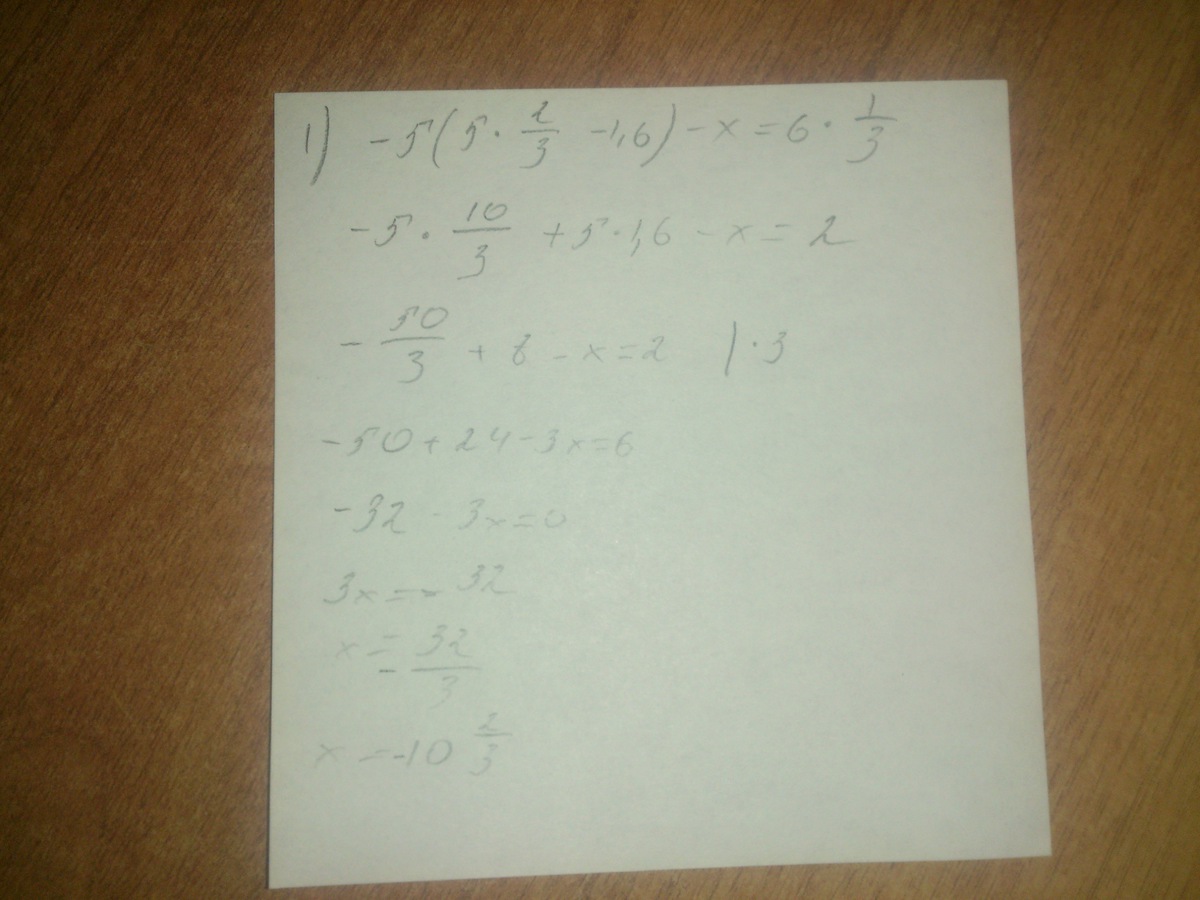 1) -5(5·2/3 -1,6)-x=6·1/3
-5·10/3 +5·1,6 -x=2
-50/3 + 8 -x=2 |·3
-50+24-3x=6
-32-3x=0
3x=-32
x=-32/3
x=-10 2/3